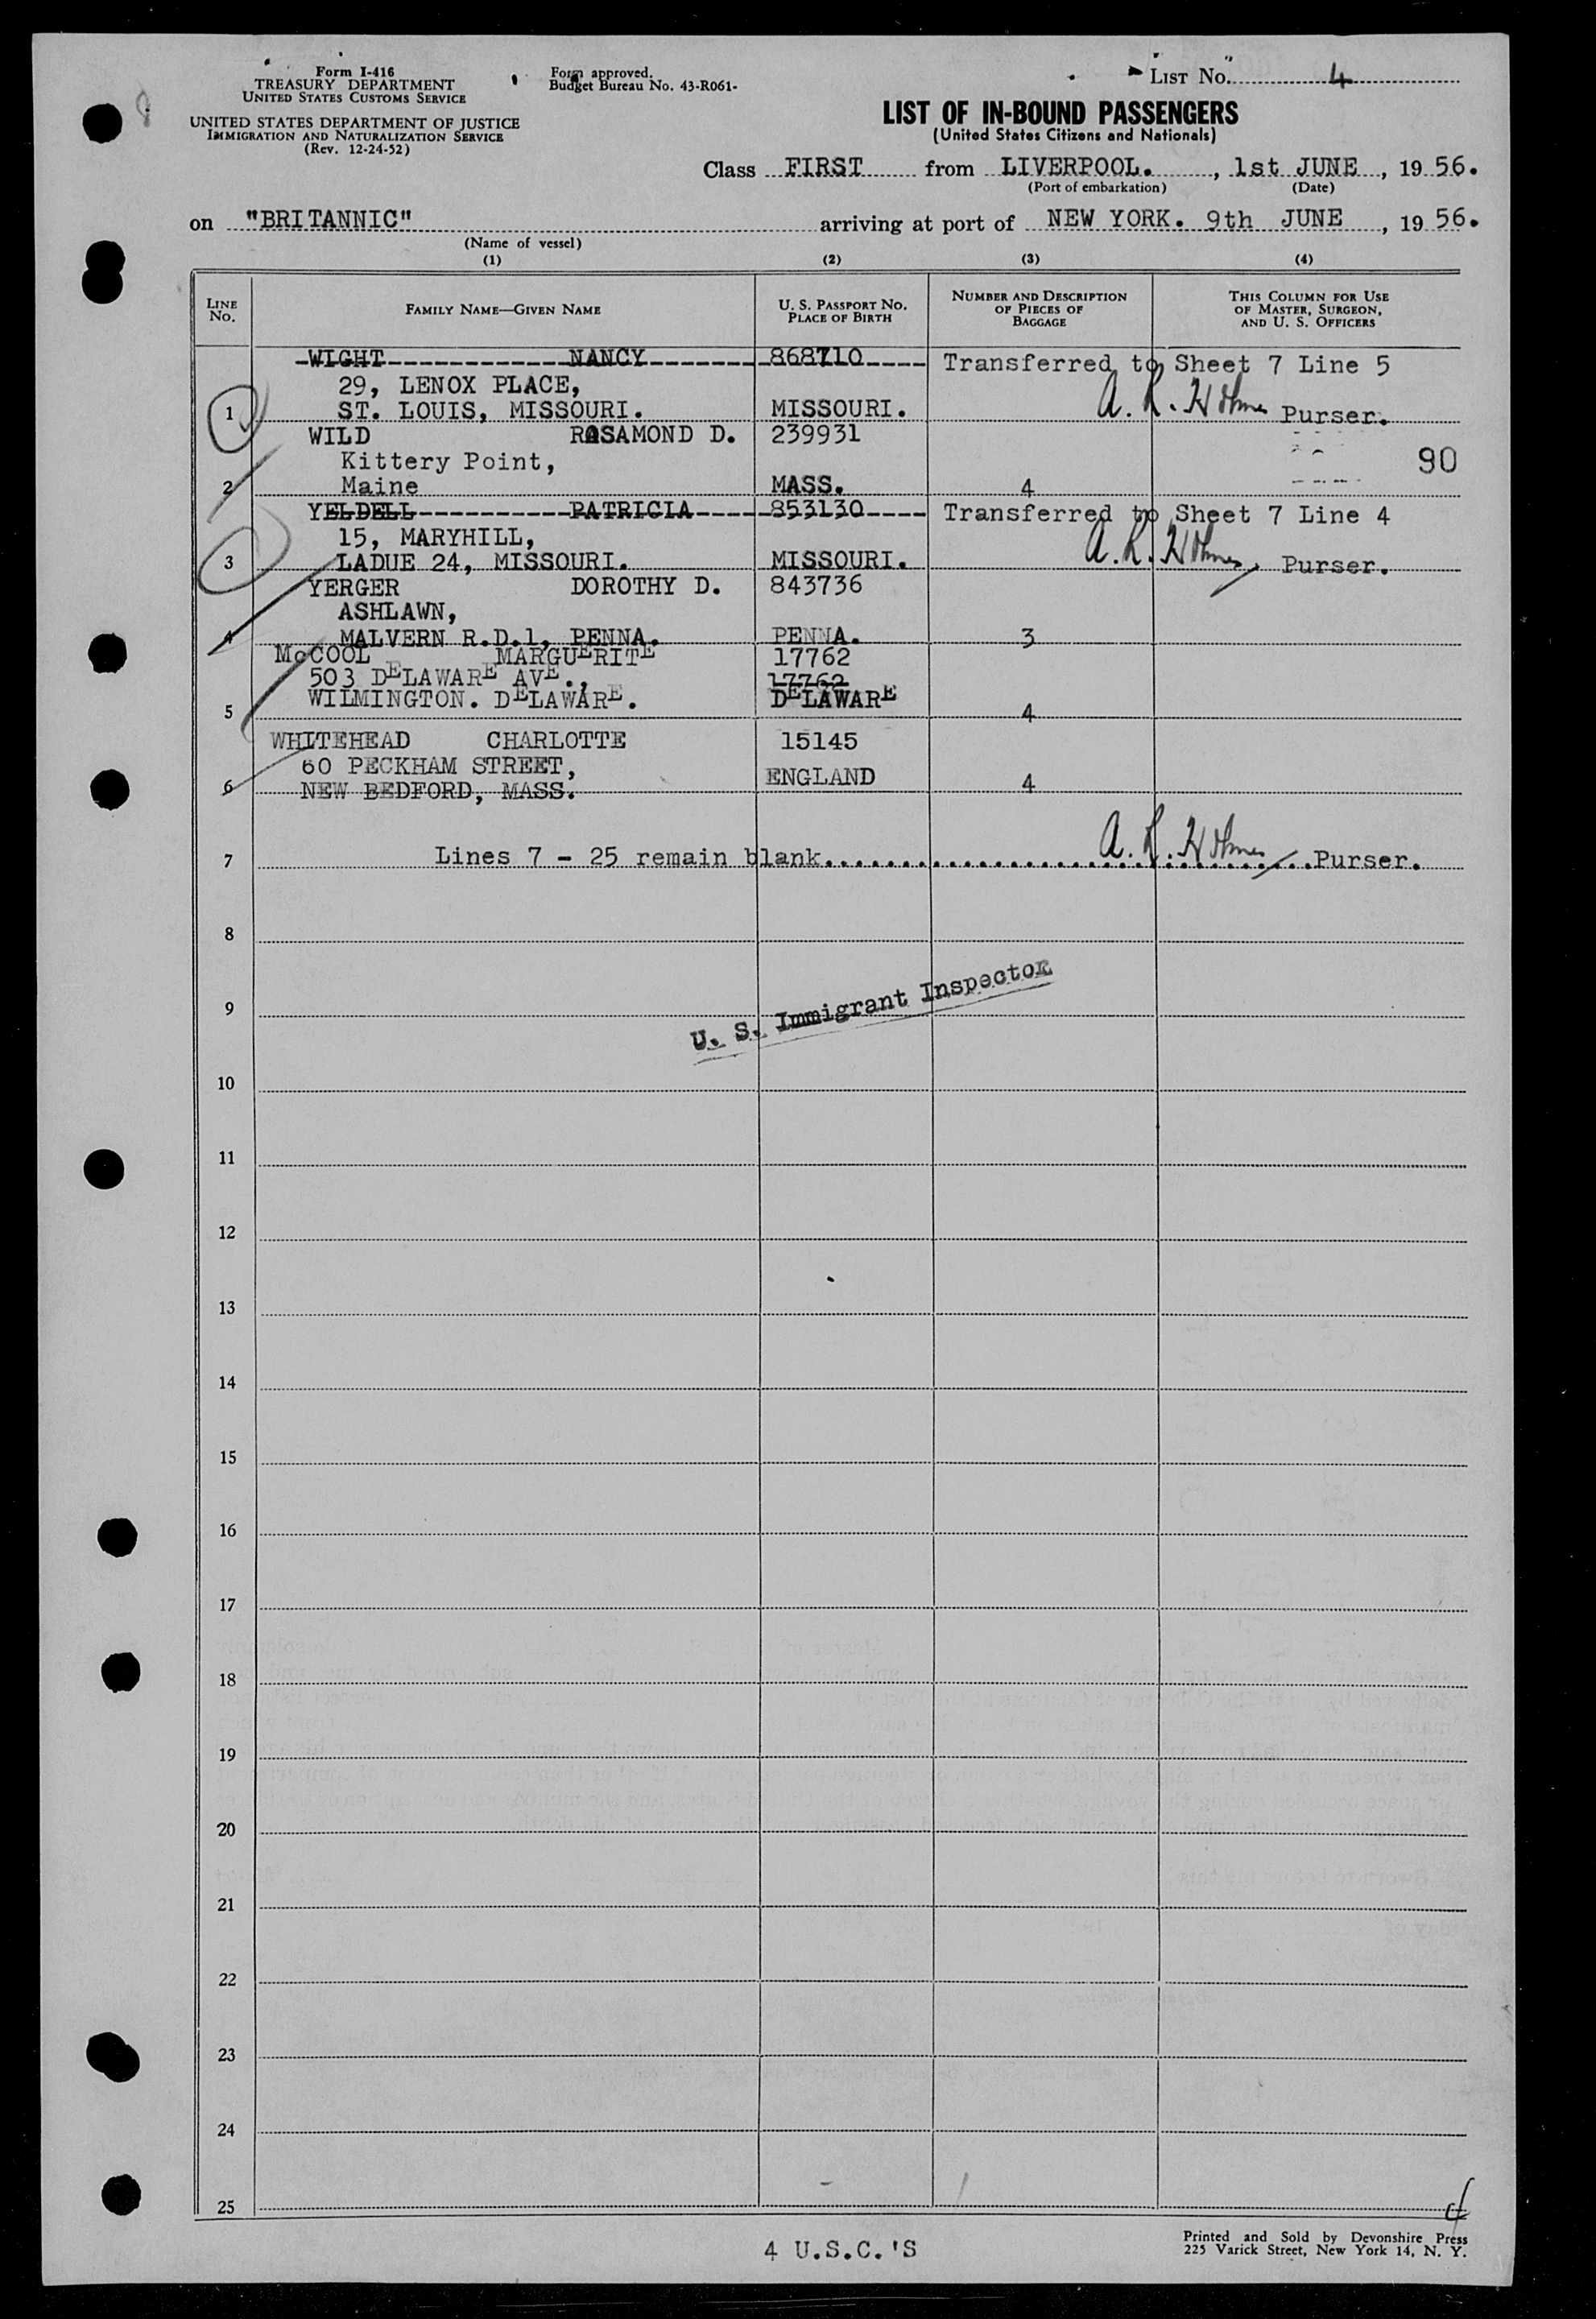 Form I-416
TREASURY DEPARTMENT
UNITED STATES CUSTOMS SERVICE
UNITED STATES DEPARTMENT OF JUSTICE
IMMIGRATION AND NATURALIZATION SERVICE
(Rev. 12-24-52)
Form approved.
Budget Bureau No. 43-R061-
LIST No. 4
LIST OF IN-BOUND PASSENGERS
(United States Citizens and Nationals)
Class FIRST from LIVERPOOL. , 1st JUNE , 19 56.
(Port of embarkation) (Date)
on "BRITANNIC" arriving at port of NEW YORK. 9th JUNE , 19 56.
(Name of vessel)
(1) (2) (3) (4)
LINE No. FAMILY NAME—GIVEN NAME U. S. PASSPORT NO. PLACE OF BIRTH NUMBER AND DESCRIPTION OF PIECES OF BAGGAGE THIS COLUMN FOR USE OF MASTER, SURGEON, AND U. S. OFFICERS
WIGHT NANCY 868710 Transferred to Sheet 7 Line 5
29, LENOX PLACE,
1 ST. LOUIS, MISSOURI. MISSOURI. A. R. Holmes Purser.
WILD ROSAMOND D. 239931
Kittery Point, 90
2 Maine MASS. 4
YELDELL PATRICIA 853130 Transferred to Sheet 7 Line 4
15, MARYHILL,
3 LADUE 24, MISSOURI. MISSOURI. A. R. Holmes, Purser.
YERGER DOROTHY D. 843736
ASHLAWN,
4 MALVERN R.D.1, PENNA. PENNA. 3
McCOOL MARGUERITE 17762
503 DELAWARE AVE., 17762
WILMINGTON. DELAWARE. DELAWARE
5 4
WHITEHEAD CHARLOTTE 15145
60 PECKHAM STREET, ENGLAND
6 NEW BEDFORD, MASS. 4
7 Lines 7 - 25 remain blank. A. R. Holmes Purser.
8
U. S. Immigrant Inspector
9
10
11
12
13
14
15
16
17
18
19
20
21
22
23
24
25
4 U.S.C.'S
Printed and Sold by Devonshire Press
225 Varick Street, New York 14, N. Y.